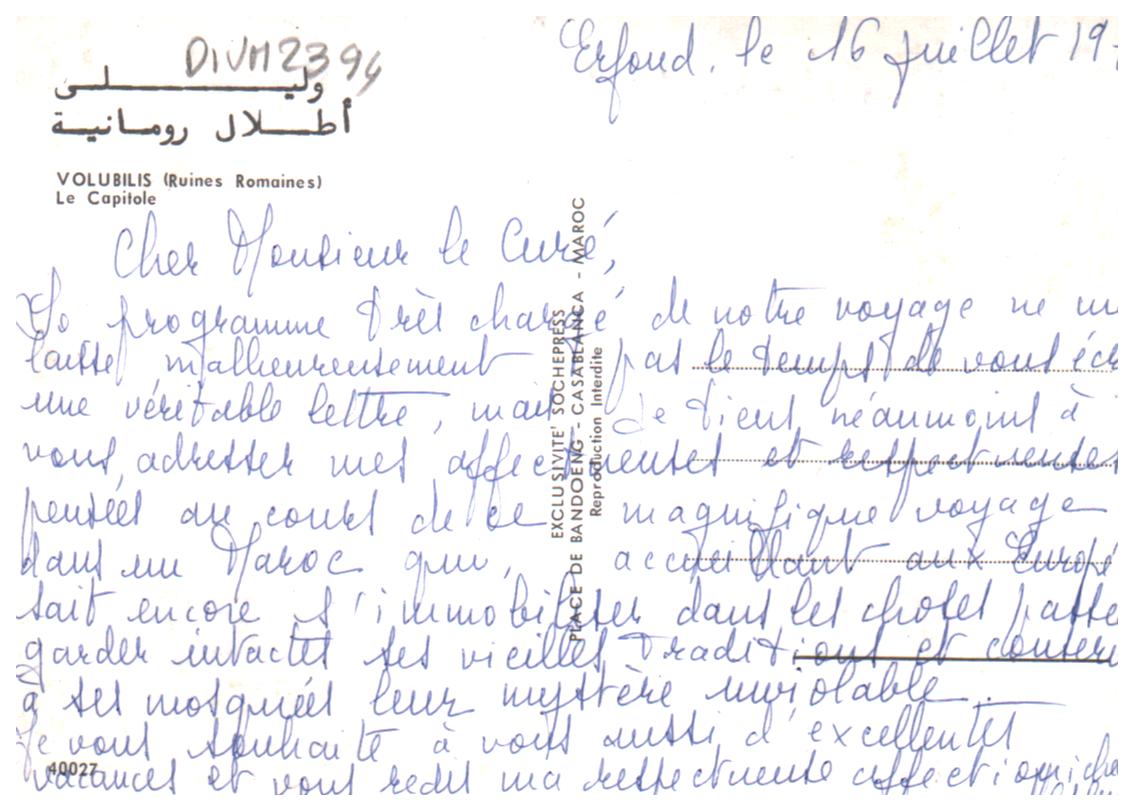 DIVM2394
Erfoud, le 16 juillet 19
وليلى
أطلال رومانية
VOLUBILIS (Ruines Romaines)
Le Capitole
Cher Monsieur le Curé,
Le programme très chargé de notre voyage ne m
laisse malheureusement pas le temps de vous écr
une véritable lettre, mais je tiens néanmoins à
vous adresser mes affectueuses et respectueuses
pensées au cours de ce magnifique voyage
dans un Maroc qui, accueillant aux Europé
sait encore s'immobiliser dans les choses passé
garder intactes ses vieilles traditions et conser
à ses mosquées leur mystère inviolable.
Je vous souhaite à vous aussi d'excellentes
vacances et vous redis ma respectueuse affection
EXCLUSIVITE' SOCHEPRESS
PLACE DE BANDOENG - CASABLANCA - MAROC
Reproduction Interdite
40027